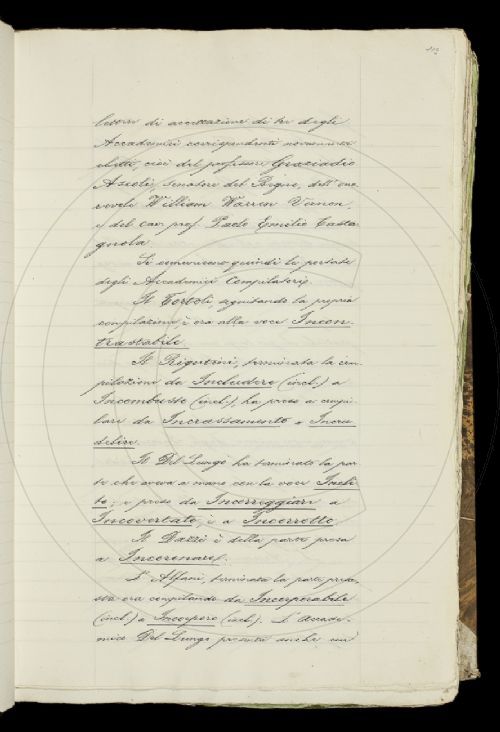 lettere di accettazione di tre degli
Accademici corrispondenti novamente
eletti, cioè del professore Graziadio
Ascoli, Senatore del Regno, dell'ono
revole William Warren Vernon,
e del Cav. prof. Paolo Emilio Casta
gnola.
Si comunicano quindi le portate
degli Accademici Compilatori.
Il Tortoli, seguitando la propria
compilazione, è ora alla voce Incon-
trastabile.
Il Rigutini, terminata la com-
pilazione da Includere (incl.) a
Incombusto (incl.), ha preso a compi-
lare da Incrassamento a Incre
dibile.
Il Del Lungo ha terminato la par
te che aveva a mano con la voce
e preso da Incorreggiare a
a Incorrotto.
Il Dazzi è della parte presa
a Incoronare.
L'Alfani, terminata la parte presa,
ora compilando da Incorporabile
(incl.) a Incorporo (incl.). L'Accade-
mico Del Lungo presenta anche